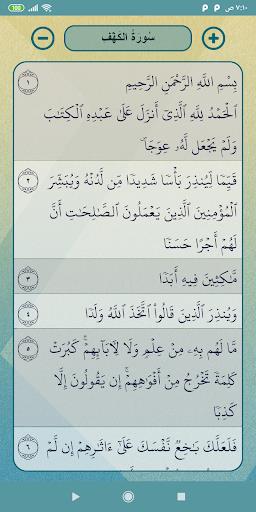 100
٧:١٠ ص
سُورَةُ الكَهْف
بِسْمِ اللَّهِ الرَّحْمَٰنِ الرَّحِيمِ
١
الْحَمْدُ لِلَّهِ الَّذِي أَنزَلَ عَلَىٰ عَبْدِهِ الْكِتَابَ
وَلَمْ يَجْعَل لَّهُ عِوَجَا ۜ
٢
قَيِّمًا لِّيُنذِرَ بَأْسًا شَدِيدًا مِّن لَّدُنْهُ وَيُبَشِّرَ
الْمُؤْمِنِينَ الَّذِينَ يَعْمَلُونَ الصَّالِحَاتِ أَنَّ
لَهُمْ أَجْرًا حَسَنًا
٣
مَّاكِثِينَ فِيهِ أَبَدًا
٤
وَيُنذِرَ الَّذِينَ قَالُوا اتَّخَذَ اللَّهُ وَلَدًا
٥
مَّا لَهُم بِهِ مِنْ عِلْمٍ وَلَا لِآبَائِهِمْ ۚ كَبُرَتْ
كَلِمَةً تَخْرُجُ مِنْ أَفْوَاهِهِمْ ۚ إِن يَقُولُونَ إِلَّا
كَذِبًا
٦
فَلَعَلَّكَ بَاخِعٌ نَّفْسَكَ عَلَىٰ آثَارِهِمْ إِن لَّمْ